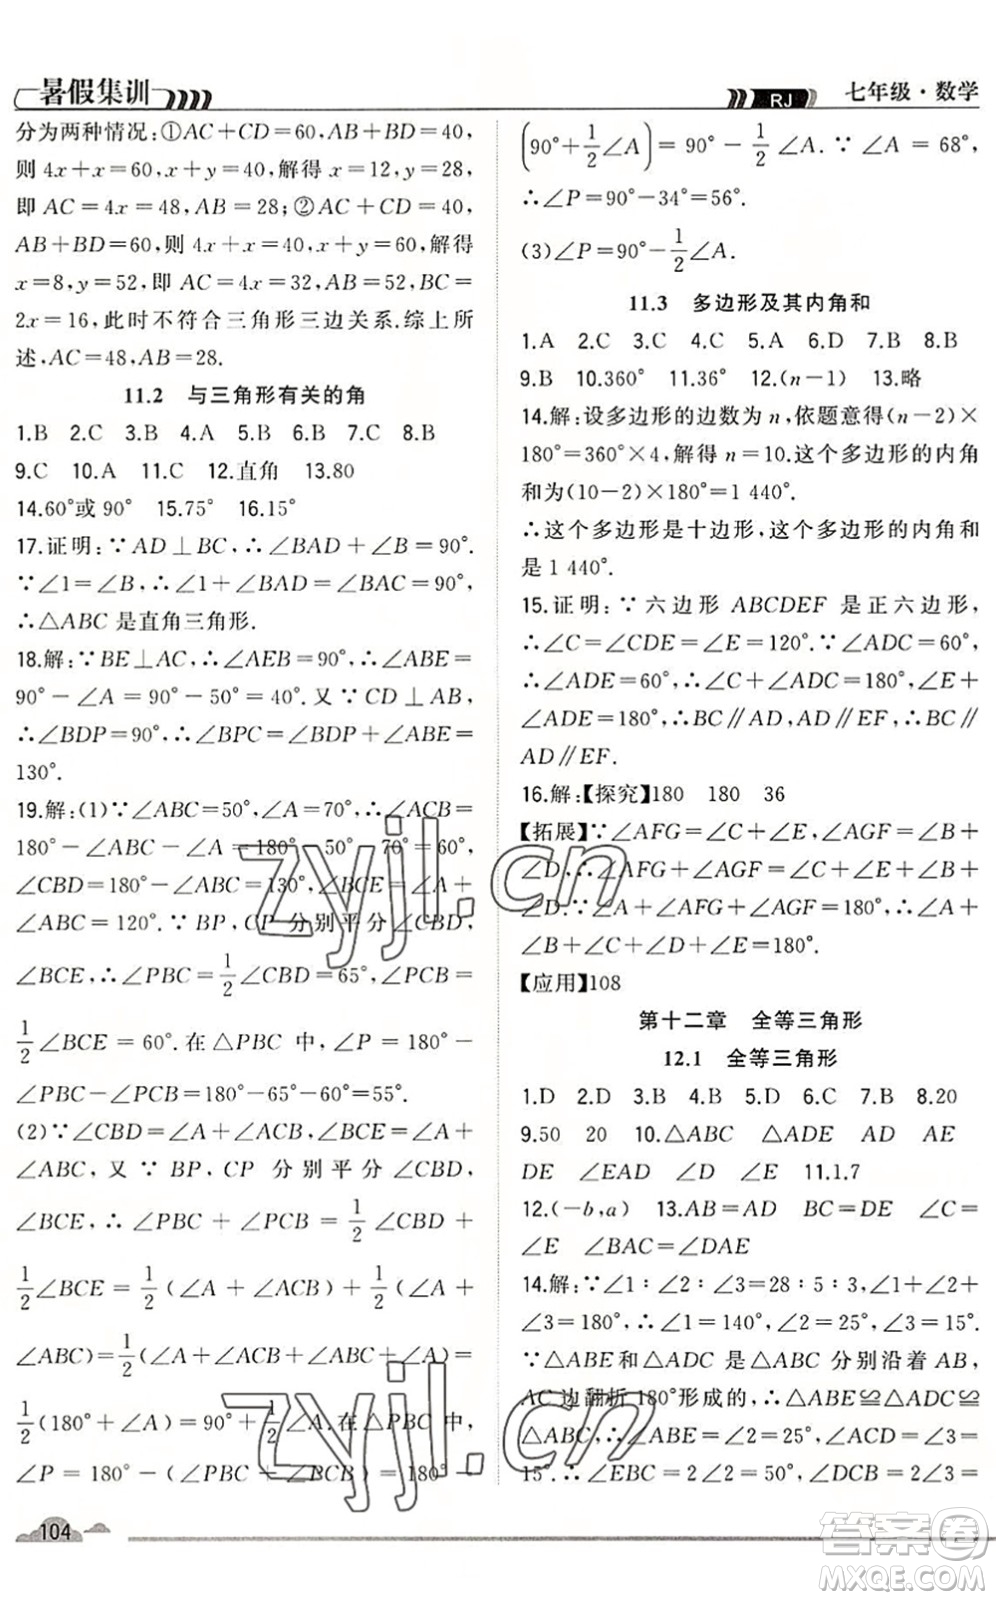 暑假集训
RJ 七年级·数学
分为两种情况:①AC+CD=60,AB+BD=40,
则 4x+x=60,x+y=40,解得 x=12,y=28,
即 AC=4x=48,AB=28;②AC+CD=40,
AB+BD=60,则 4x+x=40,x+y=60,解得
x=8,y=52,即 AC=4x=32,AB=52,BC=
2x=16,此时不符合三角形三边关系.综上所
述,AC=48,AB=28.
11.2 与三角形有关的角
1.B 2.C 3.B 4.A 5.B 6.B 7.C 8.B
9.C 10.A 11.C 12.直角 13.80
14.60°或 90° 15.75° 16.15°
17.证明:∵AD⊥BC,∴∠BAD+∠B=90°.
∵∠1=∠B,∴∠1+∠BAD=∠BAC=90°,
∴△ABC 是直角三角形.
18.解:∵BE⊥AC,∴∠AEB=90°,∴∠ABE=
90°-∠A=90°-50°=40°.又∵CD⊥AB,
∴∠BDP=90°,∴∠BPC=∠BDP+∠ABE=
130°.
19.解:(1)∵∠ABC=50°,∠A=70°,∴∠ACB=
180°-∠ABC-∠A=180°-50°-70°=60°,
∠CBD=180°-∠ABC=130°,∠BCE=∠A+
∠ABC=120°.∵BP,CP 分别平分∠CBD,
∠BCE,∴∠PBC=1/2∠CBD=65°,∠PCB=
1/2∠BCE=60°.在△PBC 中,∠P=180°-
∠PBC-∠PCB=180°-65°-60°=55°.
(2)∵∠CBD=∠A+∠ACB,∠BCE=∠A+
∠ABC,又∵BP,CP 分别平分∠CBD,
∠BCE,∴∠PBC+∠PCB=1/2∠CBD+
1/2∠BCE=1/2(∠A+∠ACB)+1/2(∠A+
∠ABC)=1/2(∠A+∠ACB+∠ABC+∠A)=
1/2(180°+∠A)=90°+1/2∠A.在△PBC 中,
∠P=180°-(∠PBC+∠PCB)=180°-
104
(90°+1/2∠A)=90°-1/2∠A.∵∠A=68°,
∴∠P=90°-34°=56°.
(3)∠P=90°-1/2∠A.
11.3 多边形及其内角和
1.A 2.C 3.C 4.C 5.A 6.D 7.B 8.B
9.B 10.360° 11.36° 12.(n-1) 13.略
14.解:设多边形的边数为 n,依题意得(n-2)×
180°=360°×4,解得 n=10.这个多边形的内角
和为(10-2)×180°=1 440°.
∴这个多边形是十边形,这个多边形的内角和
是 1 440°.
15.证明:∵六边形 ABCDEF 是正六边形,
∴∠C=∠CDE=∠E=120°.∵∠ADC=60°,
∴∠ADE=60°,∴∠C+∠ADC=180°,∠E+
∠ADE=180°,∴BC∥AD,AD∥EF,∴BC∥
AD∥EF.
16.解:【探究】180 180 36
【拓展】∵∠AFG=∠C+∠E,∠AGF=∠B+
∠D,∴∠A+∠AFG+∠AGF=∠C+∠E+∠B+
∠D.∵∠A+∠AFG+∠AGF=180°,∴∠A+
∠B+∠C+∠D+∠E=180°.
【应用】108
第十二章 全等三角形
12.1 全等三角形
1.D 2.D 3.B 4.B 5.D 6.C 7.B 8.20
9.50 20 10.△ABC △ADE AD AE
DE ∠EAD ∠D ∠E 11.1.7
12.(-b,a) 13.AB=AD BC=DE ∠C=
∠E ∠BAC=∠DAE
14.解:∵∠1∶∠2∶∠3=28∶5∶3,∠1+∠2+
∠3=180°,∴∠1=140°,∠2=25°,∠3=15°.
∵△ABE 和△ADC 是△ABC 分别沿着 AB,
AC 边翻折 180°形成的,∴△ABE≌△ADC≌
△ABC,∴∠ABE=∠2=25°,∠ACD=∠3=
15°.∴∠EBC=2∠2=50°,∠ACD=∠3=
zyjl.cn
zyjl.cn
答案圈
MXQE.COM